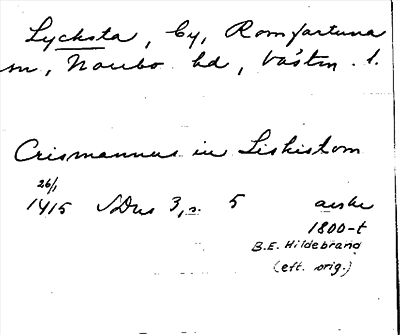 Lycksta, by, Romfartuna
sn, Norrbo hd, Västm. l.
Crismannus in Liskistom
26/1
1415 SDns 3, s. 5 avskr
1800-t
B.E. Hildebrand
(eft. orig.)